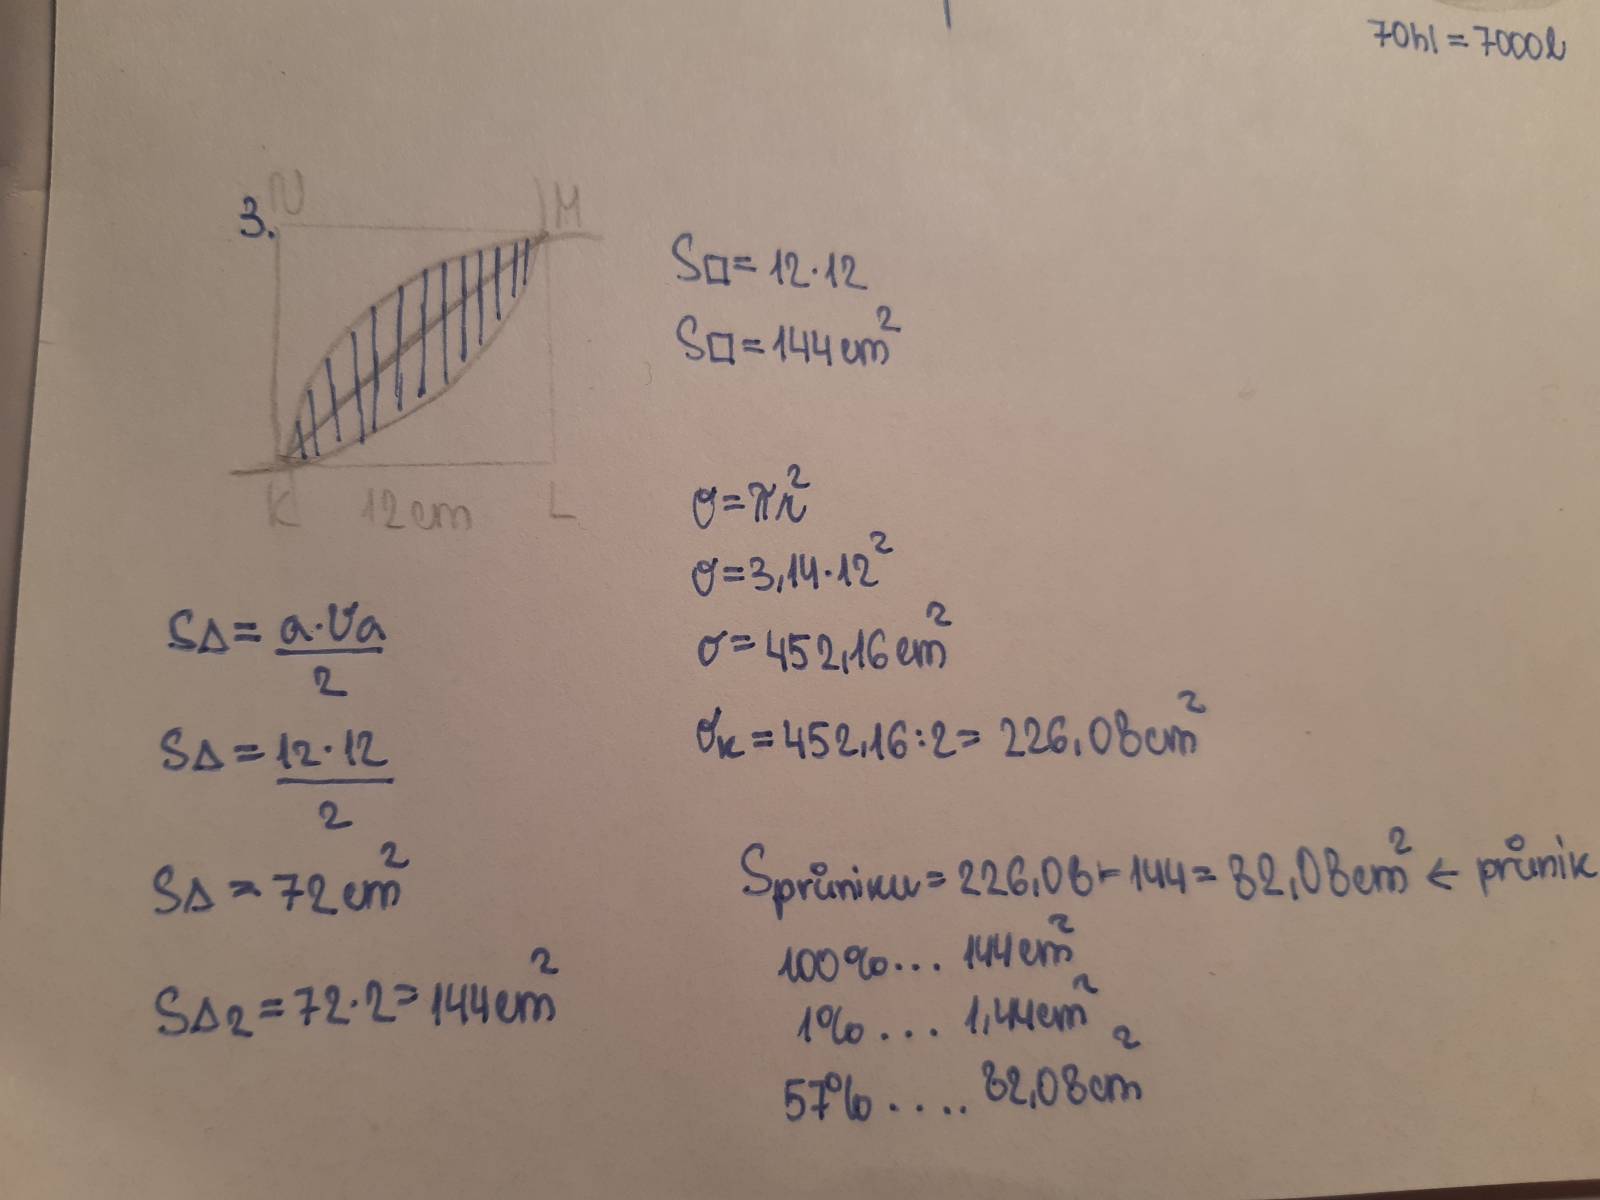 70hl = 7000l
3.
N M
K 12cm L
S□ = 12·12
S□ = 144cm²
σ = πr²
σ = 3,14·12²
σ = 452,16cm²
σk = 452,16:2 = 226,08cm²
S△ = a·va
2
S△ = 12·12
2
S△ = 72cm²
S△2 = 72·2 = 144cm²
Sprůniku = 226,08 - 144 = 82,08cm² ← průnik
100% ... 144cm²
1% ... 1,44cm²
57% .... 82,08cm²